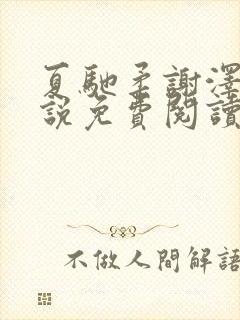 夏馳柔謝澤
說免費閱讀
不做人間解語